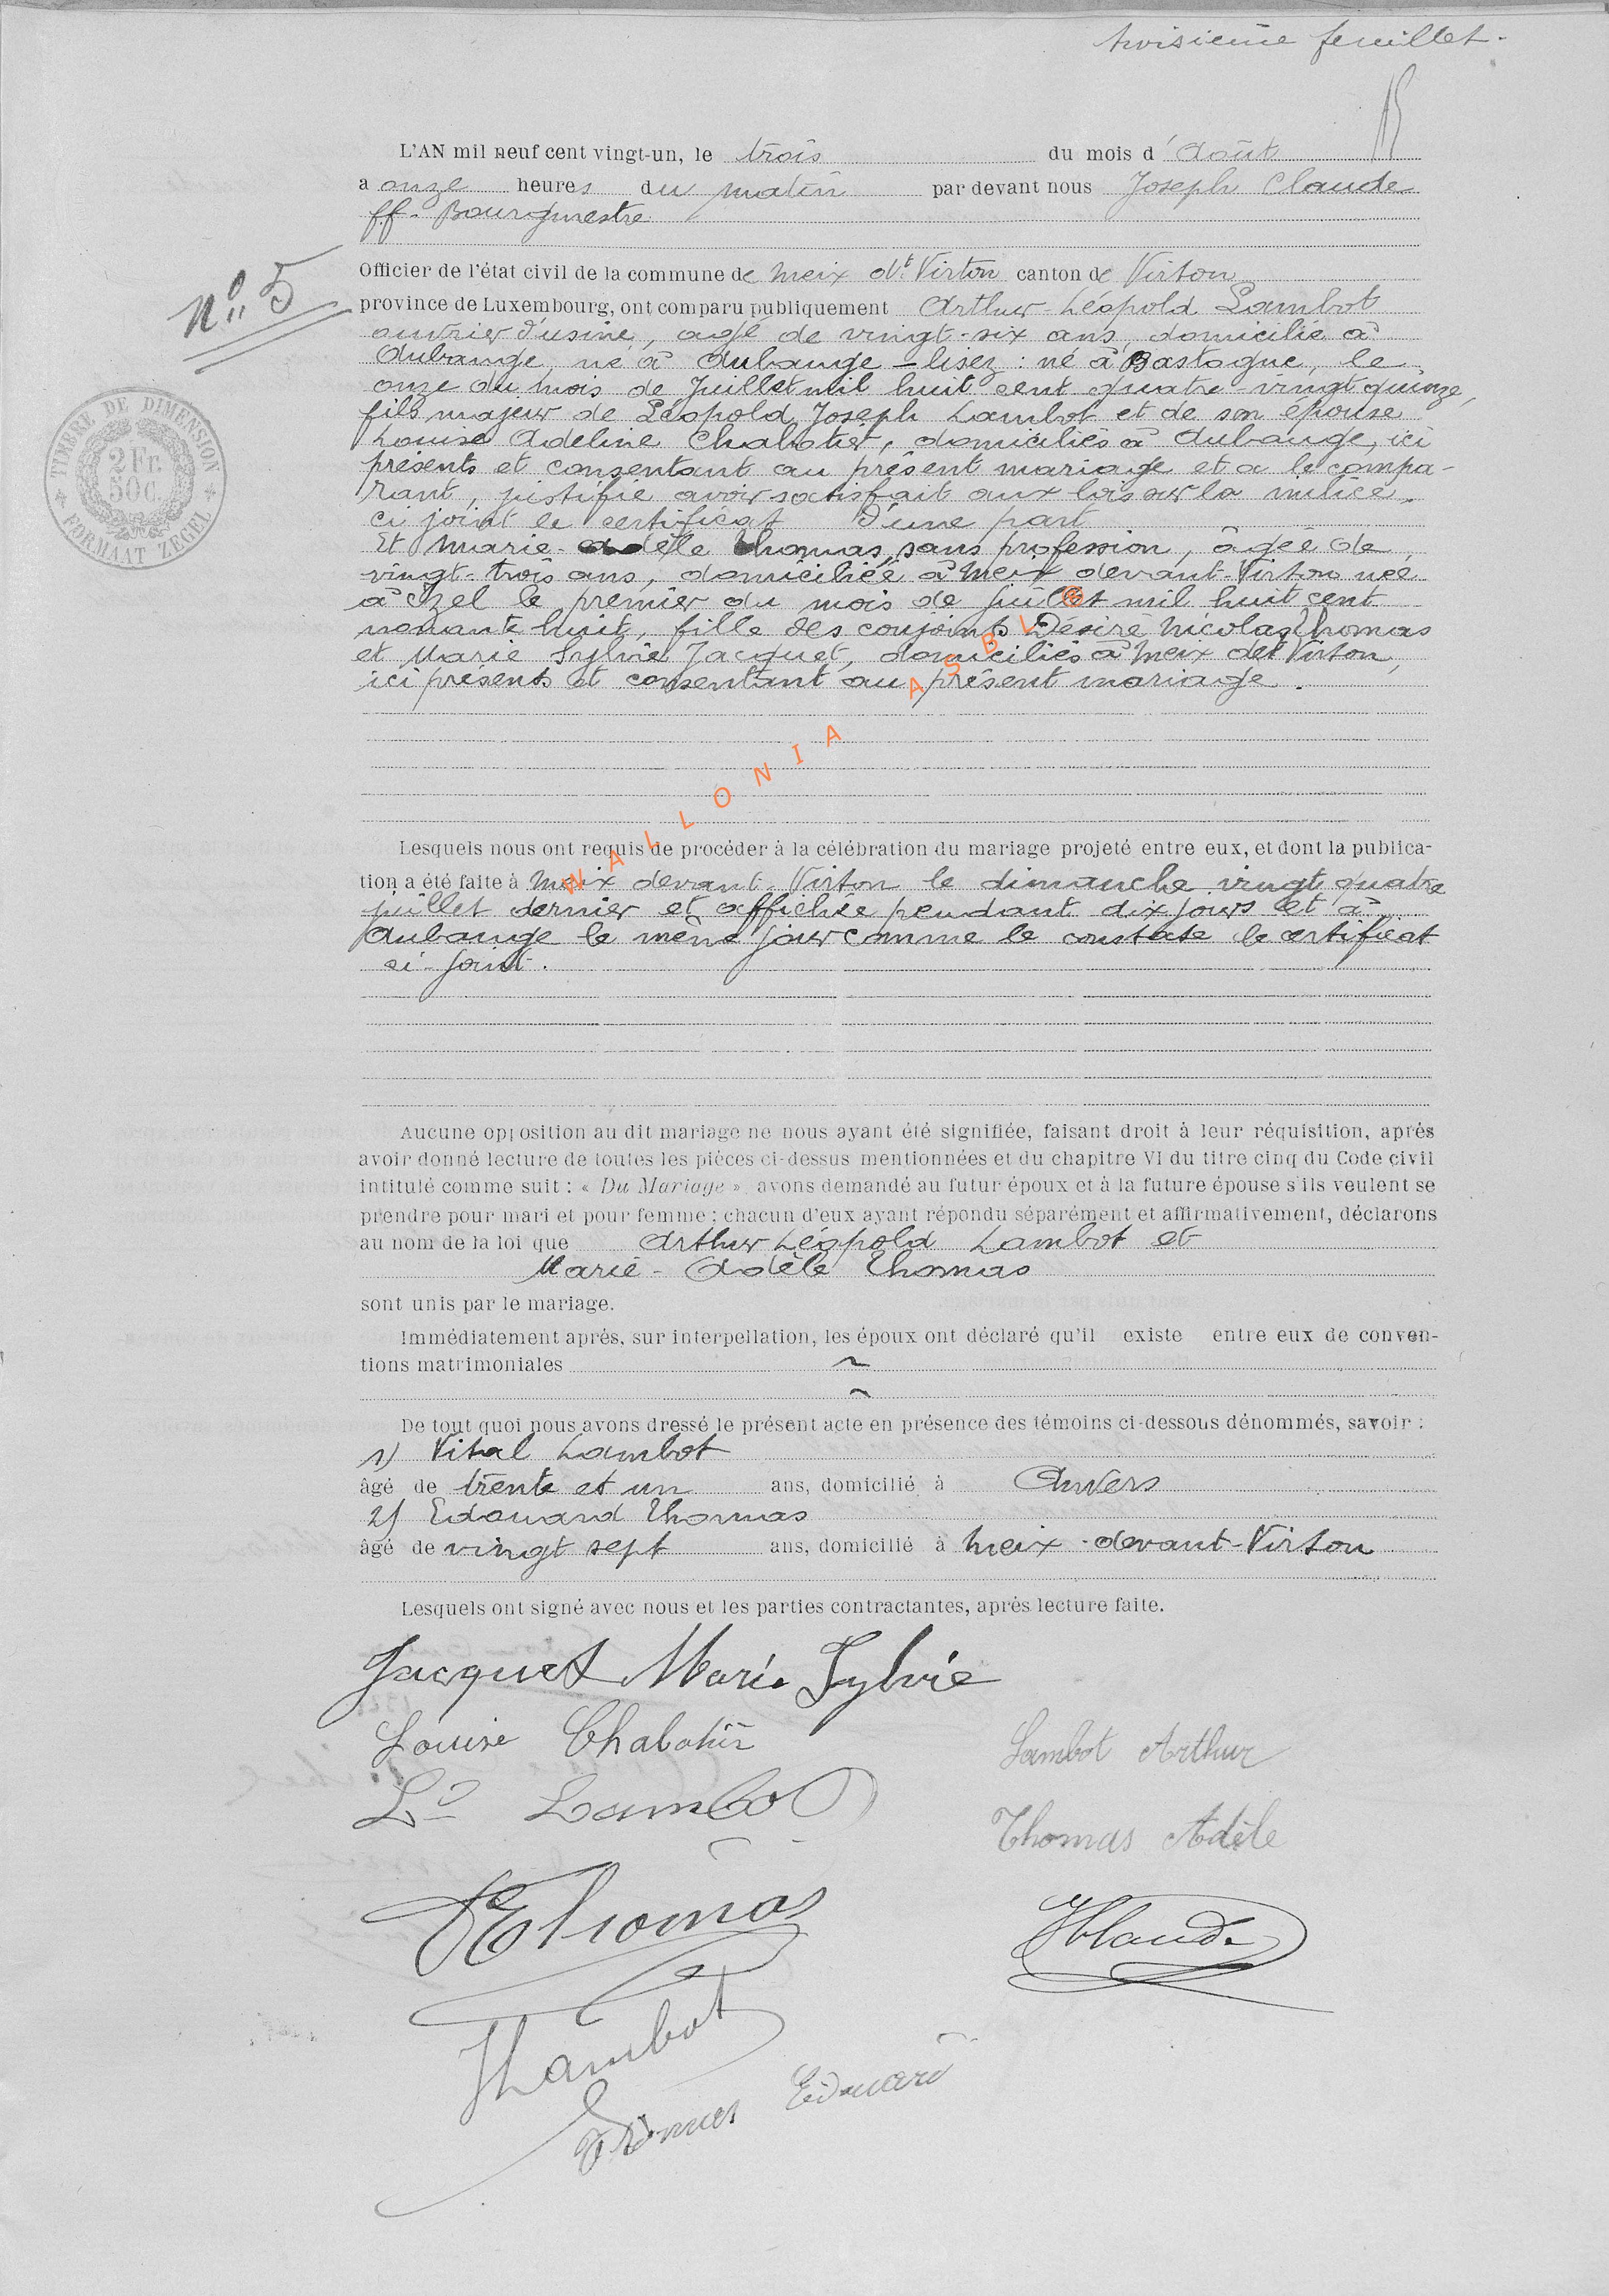 troisième feuillet.
L'AN mil neuf cent vingt-un, le trois du mois d'Août
a onze heures du matin par devant nous Joseph Claude
ff. Bourgmestre
Officier de l'état civil de la commune de Meix dt Virton canton de Virton
N° 5
province de Luxembourg, ont comparu publiquement Arthur-Léopold Lambot
ouvrier d'usine, agé de vingt-six ans, domicilié à
Aubange, né à Aubange – lisez : né à Bastogne, le
onze du mois de Juillet mil huit cent quatre-vingt quinze,
fils majeur de Léopold Joseph Lambot et de son épouse
Louise Adeline Chalotier, domiciliés à Aubange, ici
présents et consentant au présent mariage et a le compa-
rant, justifié avoir satisfait aux lois sur la milice.
ci joint le certificat D'une part
Et Marie-Adèle Thomas, sans profession, âgée de
vingt-trois ans, domiciliée à Meix devant-Virton née
à Izel le premier du mois de Juillet mil huit cent
nonante huit, fille des conjoints Désiré Nicolas Thomas
et Marie Sylvie Jacquet, domiciliés à Meix dvt Virton,
ici présents et consentant au présent mariage.
WALLONIA ASBL ©
Lesquels nous ont requis de procéder à la célébration du mariage projeté entre eux, et dont la publica-
tion a été faite à Meix devant-Virton le dimanche vingt quatre
juillet dernier et affichée pendant dix jours et à
Aubange le même jour comme le constate le certificat
ci-joint.
Aucune opposition au dit mariage ne nous ayant été signifiée, faisant droit à leur réquisition, après
avoir donné lecture de toutes les pièces ci-dessus mentionnées et du chapitre VI du titre cinq du Code civil
intitulé comme suit : « Du Mariage » avons demandé au futur époux et à la future épouse s'ils veulent se
prendre pour mari et pour femme ; chacun d'eux ayant répondu séparément et affirmativement, déclarons
au nom de la loi que Arthur Léopold Lambot et
Marie-Adèle Thomas
sont unis par le mariage.
Immédiatement après, sur interpellation, les époux ont déclaré qu'il existe entre eux de conven-
tions matrimoniales ~
~
De tout quoi nous avons dressé le présent acte en présence des témoins ci-dessous dénommés, savoir :
1) Vital Lambot
âgé de trente et un ans, domicilié à Anvers
2) Edouard Thomas
âgé de vingt sept ans, domicilié à Meix-devant-Virton
Lesquels ont signé avec nous et les parties contractantes, après lecture faite.
Jacquet Marie Sylvie
Louise Chalotier
Lambot Arthur
Ld Lambot
Thomas Adèle
DThomas
JClaude
Lambot
Thomas Edouard
TIMBRE DE DIMENSION
2 Fr.
50 c.
FORMAAT ZEGEL